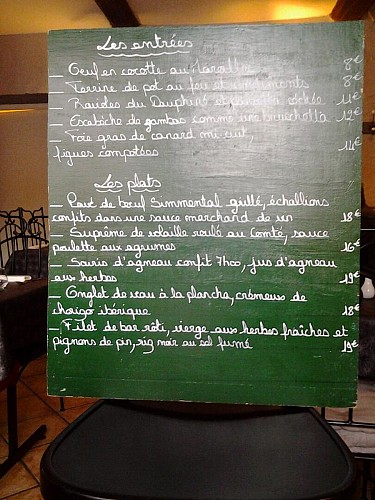 Les entrées
_ Oeuf en cocotte au Marcellin 8€
_ Terrine de pot au feu et condiments 8€
_ Ravioles du Dauphiné et pancetta séchée 11€
_ Escabèche de gambas comme une bruschetta 12€
_ Foie gras de canard mi cuit,
figues compotées 14€
Les plats
_ Pavé de bœuf Simmental grillé, échallions
confits dans une sauce marchand de vin 18€
_ Suprême de volaille roulé au Comté, sauce
poulette aux agrumes 16€
_ Souris d'agneau confit 7h00, jus d'agneau
aux herbes 19€
_ Onglet de veau à la plancha, crémeux de
chorizo ibérique 18€
_ Filet de bar rôti, vierge aux herbes fraîches et
pignons de pin, riz noir au sel fumé 19€